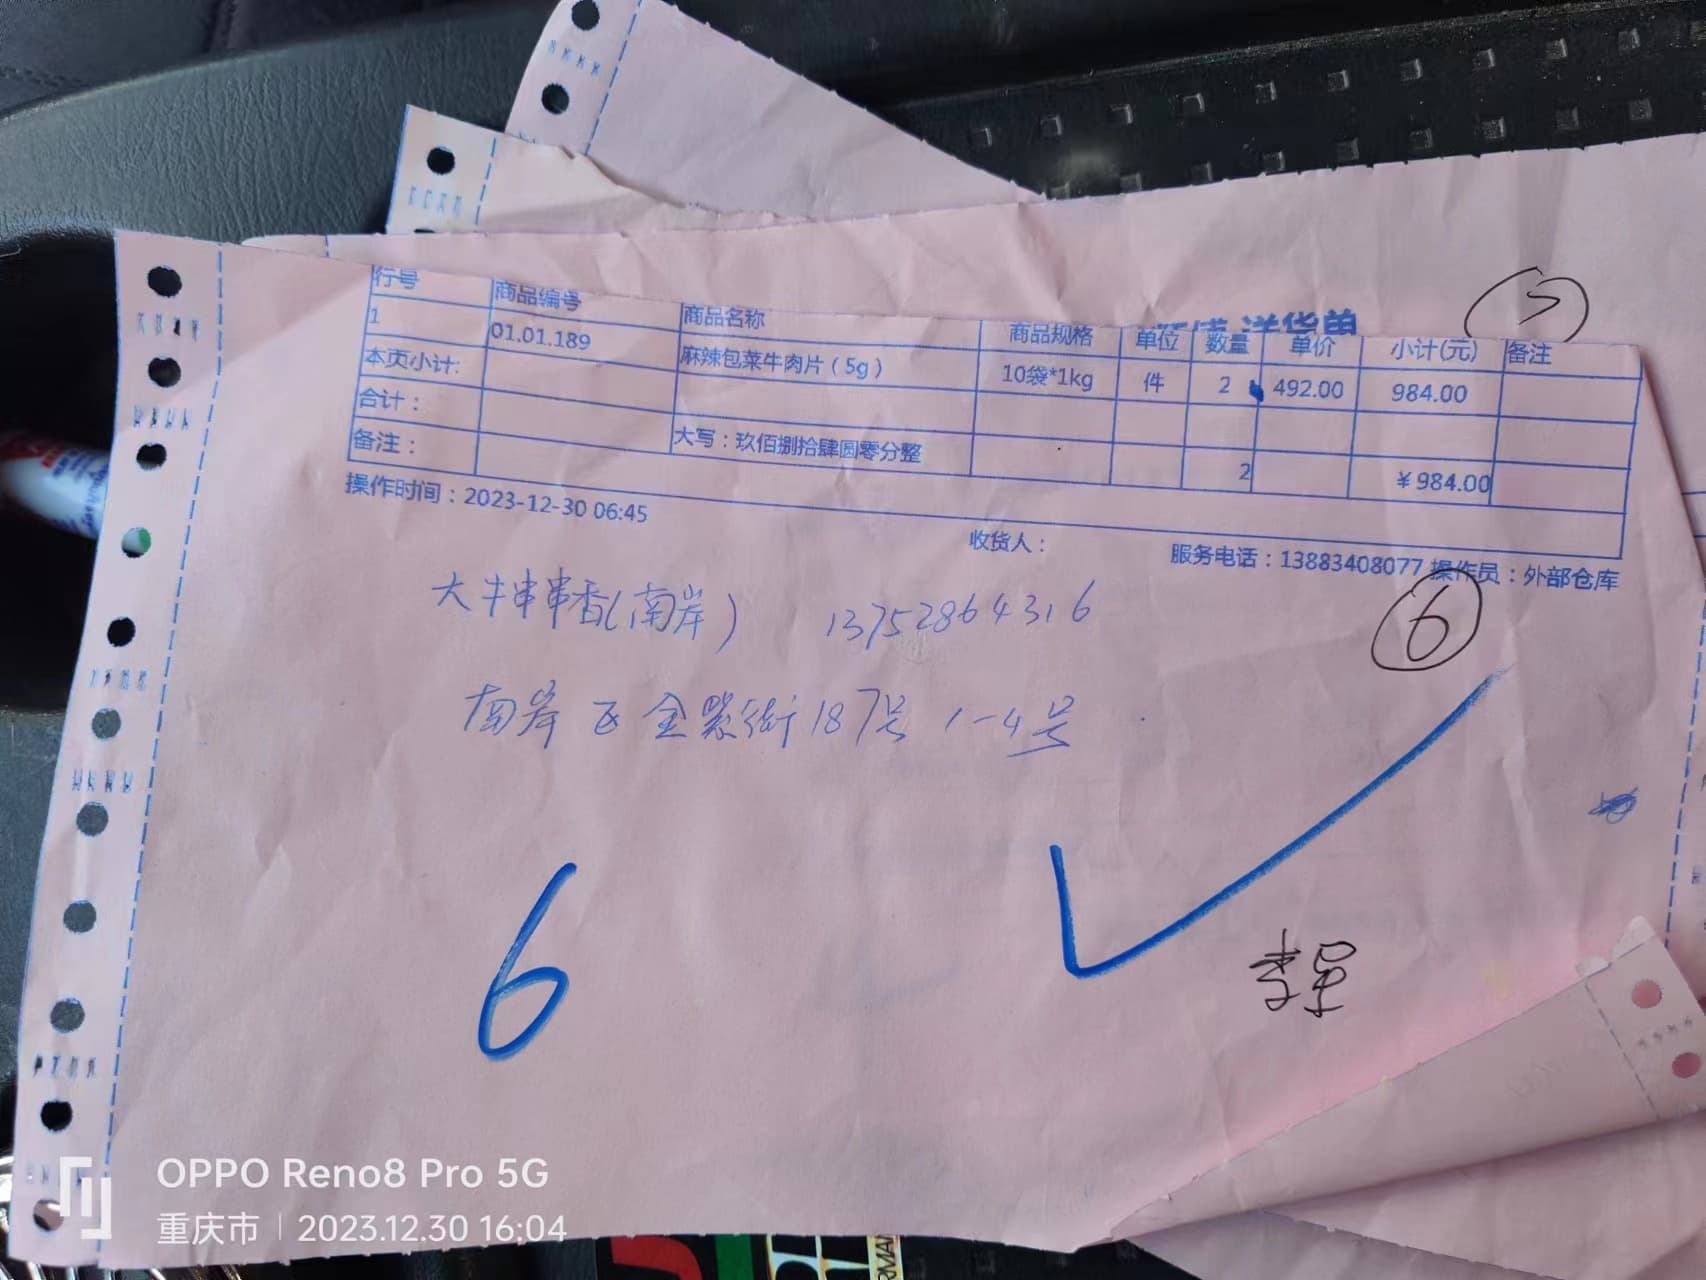 送货单
5
行号 商品编号 商品名称 商品规格 单位 数量 单价 小计(元) 备注
1 01.01.189 麻辣包菜牛肉片（5g） 10袋*1kg 件 2 492.00 984.00
本页小计:
合计： 大写：玖佰捌拾肆圆零分整 2 ￥984.00
备注：
操作时间：2023-12-30 06:45 收货人： 服务电话：13883408077 操作员：外部仓库
大牛串串香(南岸) 13752864316
6
南岸区金紫街187号 1-4号
6
OPPO Reno8 Pro 5G
重庆市 | 2023.12.30 16:04